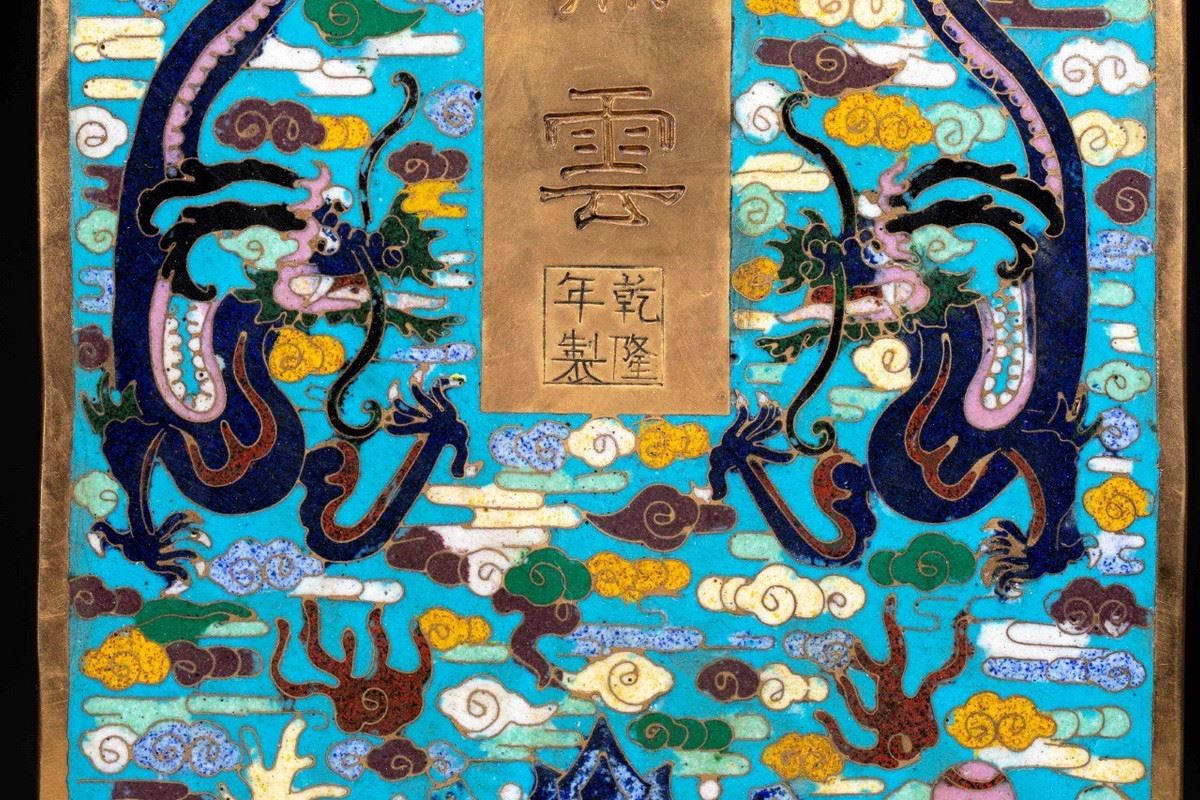 雲
乾隆
年製